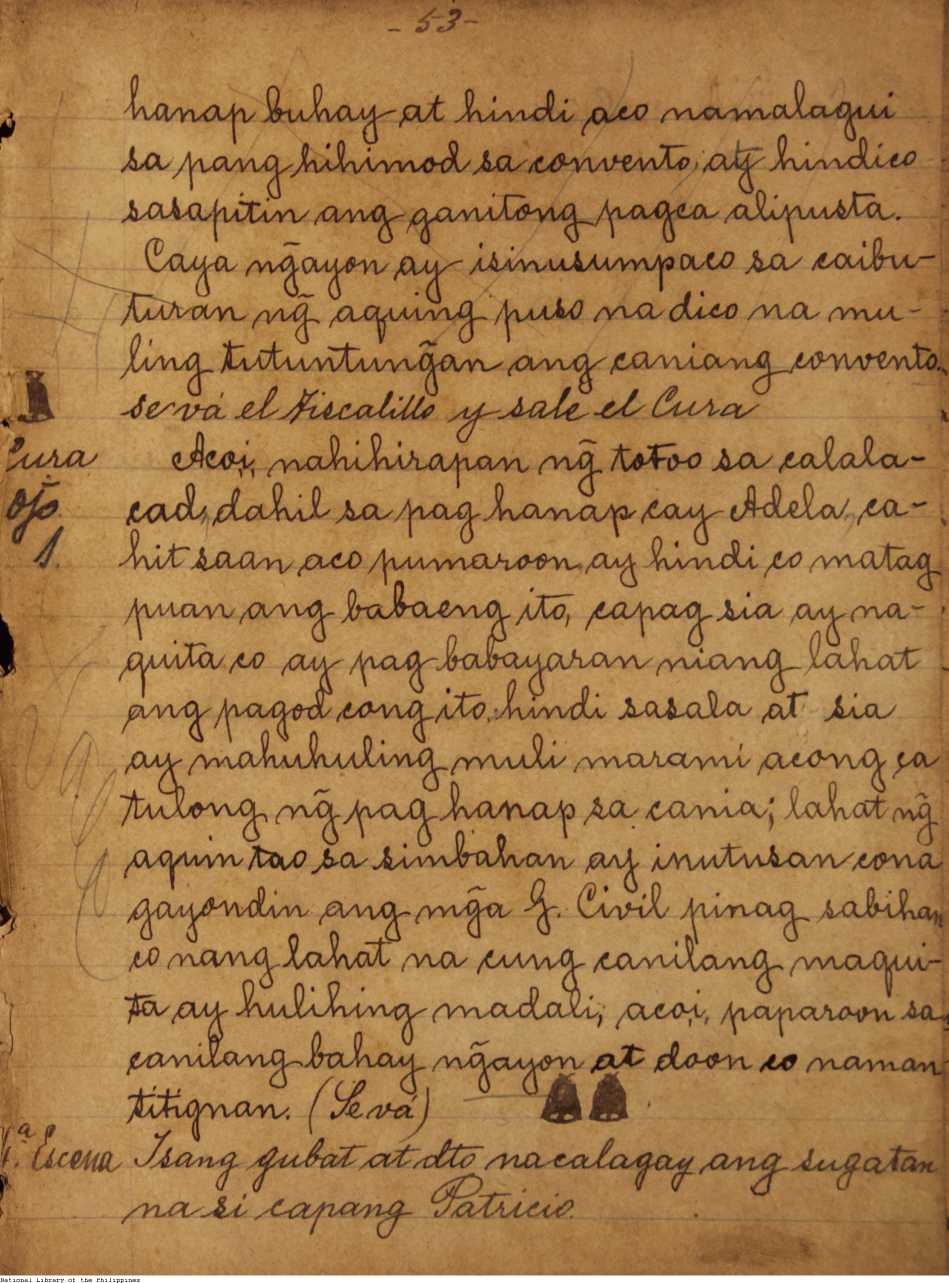 - 53 -
hanap buhay at hindi aco namalagui
sa pang hihimod sa convento, at hindico
sasapitin ang ganitong pagca alipusta.
Caya ng̃ayon ay isinusumpaco sa caibu-
turan ng̃ aquing puso na dico na mu-
ling tutuntung̃an ang caniang convento.
se vá el Fiscalillo y sale el Cura
Cura Acoi, nahihirapan ng̃ totoo sa calala-
ojo. cad, dahil sa pag hanap cay Adela, ca-
1. hit saan aco pumaroon, ay hindi co matag
puan ang babaeng ito, capag sia ay na-
quita co ay pag babayaran niang lahat
ang pagod cong ito, hindi sasala at sia
ay mahuhuling muli marami acong ca
tulong ng̃ pag hanap sa cania; lahat ng̃
aquin tao sa simbahan ay inutusan cona
gayondin ang mg̃a G. Civil pinag sabihan
co nang lahat na cung canilang maqui-
ta ay hulihing madali, acoi, paparoon sa
canilang bahay ng̃ayon at doon co naman
titignan. (Se vá)
Escena Isang gubat at dto nacalagay ang sugatan
na si capang Patricio.
National Library of the Philippines